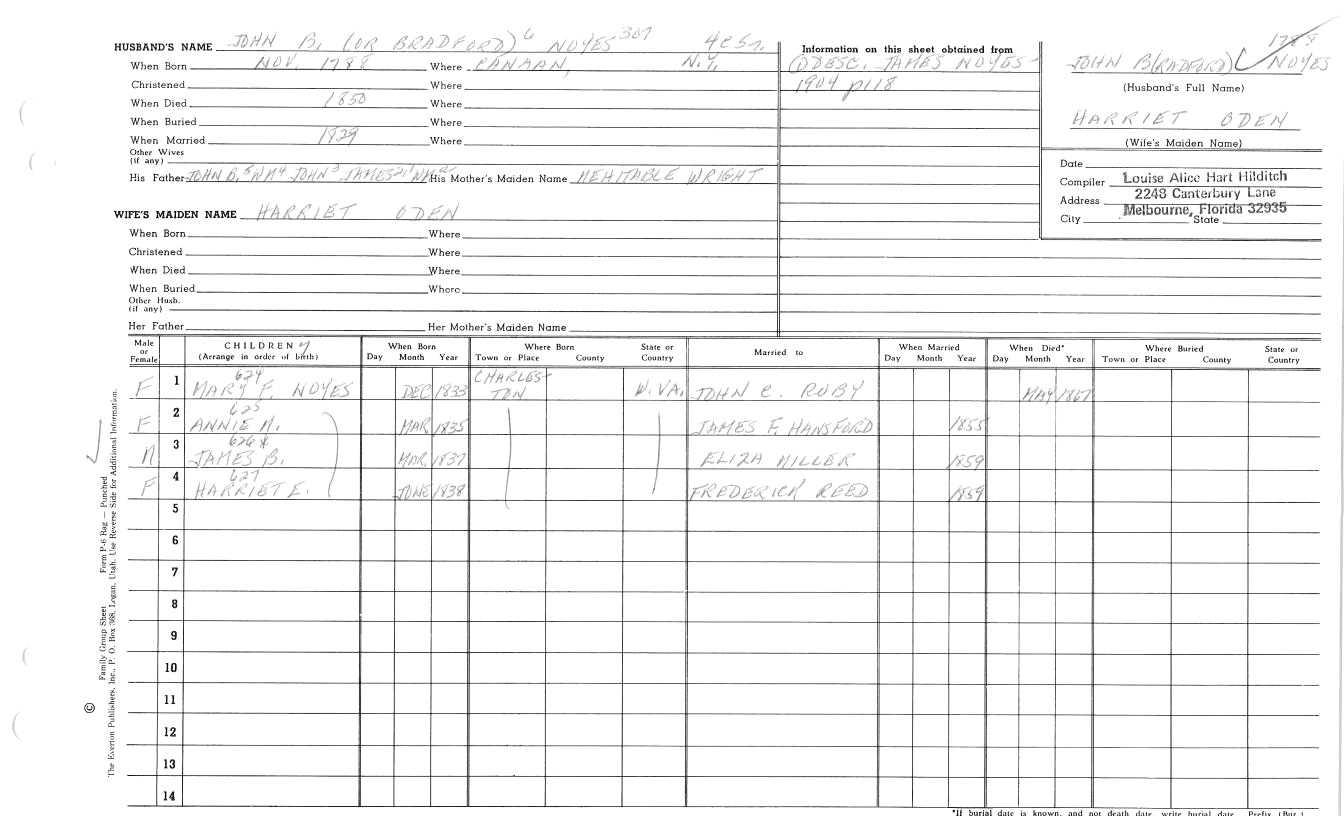 HUSBAND'S NAME JOHN B. (OR BRADFORD) 6 NOYES 307 4C5r.
When Born NOV. 1788 Where CANAAN, N.Y.
Christened Where
When Died 1850 Where
When Buried Where
When Married 1829 Where
Other Wives
(if any)
His Father JOHN B.5 WM4 JOHN3 JAMES2 His Mother's Maiden Name MEHITABLE WRIGHT
WIFE'S MAIDEN NAME HARRIET ODEN
When Born Where
Christened Where
When Died Where
When Buried Where
Other Husb.
(if any)
Her Father Her Mother's Maiden Name
Information on this sheet obtained from
DESC. JAMES NOYES-
1904 p118
1788
JOHN B(RADFORD) NOYES
(Husband's Full Name)
HARRIET ODEN
(Wife's Maiden Name)
Date
Compiler Louise Alice Hart Hilditch
Address 2248 Canterbury Lane
Melbourne, Florida 32935
City State
Male or Female CHILDREN 7 (Arrange in order of birth) When Born Day Month Year Where Born Town or Place County State or Country Married to When Married Day Month Year When Died* Day Month Year Where Buried Town or Place County State or Country
F 1 624 MARY F. NOYES DEC 1833 CHARLESTON W.VA. JOHN C. RUBY MAY 1867
F 2 625 ANNIE M. MAR 1835 JAMES F. HANSFORD 1855
M 3 626 * JAMES B. MAR 1837 ELIZA MILLER 1859
F 4 627 HARRIET E. JUNE 1838 FREDERICK REED 1859
5
6
7
8
9
10
11
12
13
14
Family Group Sheet Form P-6 Rag — Punched
© The Everton Publishers, Inc., P. O. Box 368, Logan, Utah. Use Reverse Side for Additional Information.
*If burial date is known, and not death date, write burial date Prefix (Bur.)